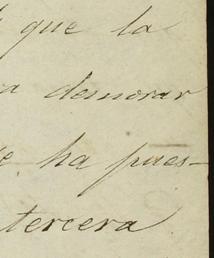 que la
demorar
ha pues-
tercera